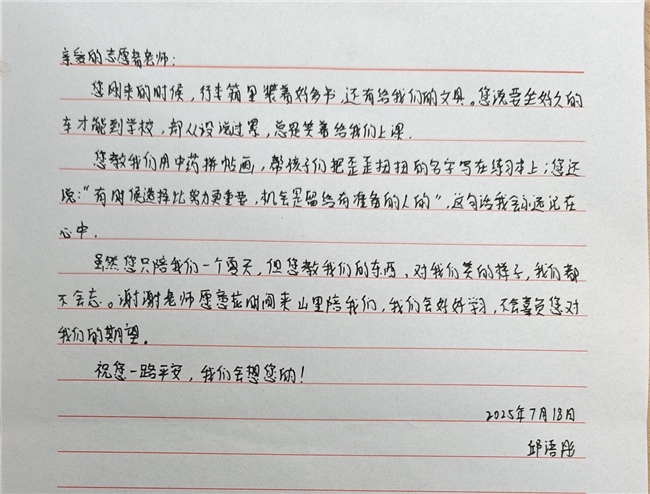 亲爱的志愿者老师：
您刚来的时候，行李箱里装着好多书，还有给我们的文具。您说要坐好久的
车才能到学校，却从没说过累，总是笑着给我们上课.
您教我们用中药拼帖画，帮孩子们把歪歪扭扭的名字写在练习本上；您还
说："有时候选择比努力更重要，机会是留给有准备的人的"，这句话我会永远记在
心中.
虽然您只陪我们一个夏天，但您教我们的东西，对我们笑的样子，我们都
不会忘.。谢谢老师愿意花时间来山里陪我们，我们会好好学习，不会辜负您对
我们的期望。
祝您一路平安，我们会想您的！
2025年7月18日
邱语彤